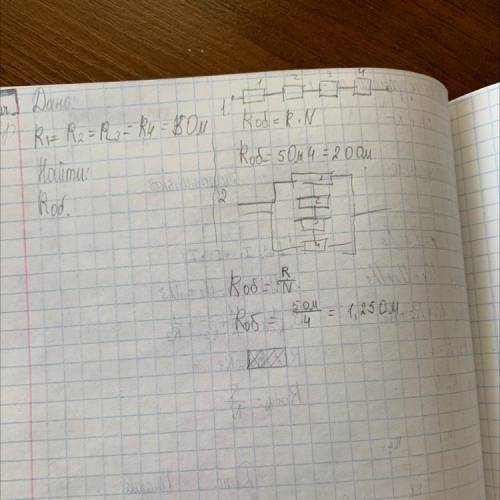 Дано:
R1 = R2 = R3 = R4 = 5 Ом
Найти:
Rоб.
1 2 3 4
1.
Rоб = R · N
Rоб = 5 Ом 4 = 20 Ом
2
1
2
3
4
Rоб = R/N
Rоб = 5 Ом/4 = 1,25 Ом.